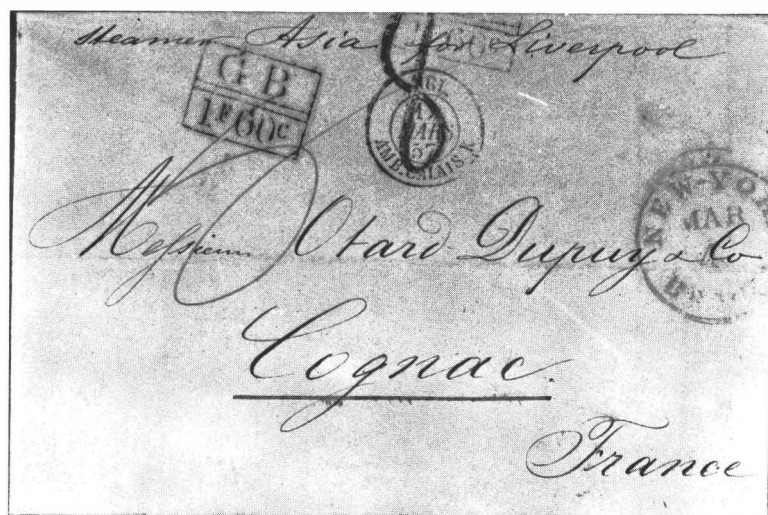 steamer Asia for Liverpool
GB
1F60c
60
8
ANGL.
MARS
57
AMB. CALAIS A
NEW-YORK
MAR
Messieurs Otard Dupuy & Co
Cognac.
France